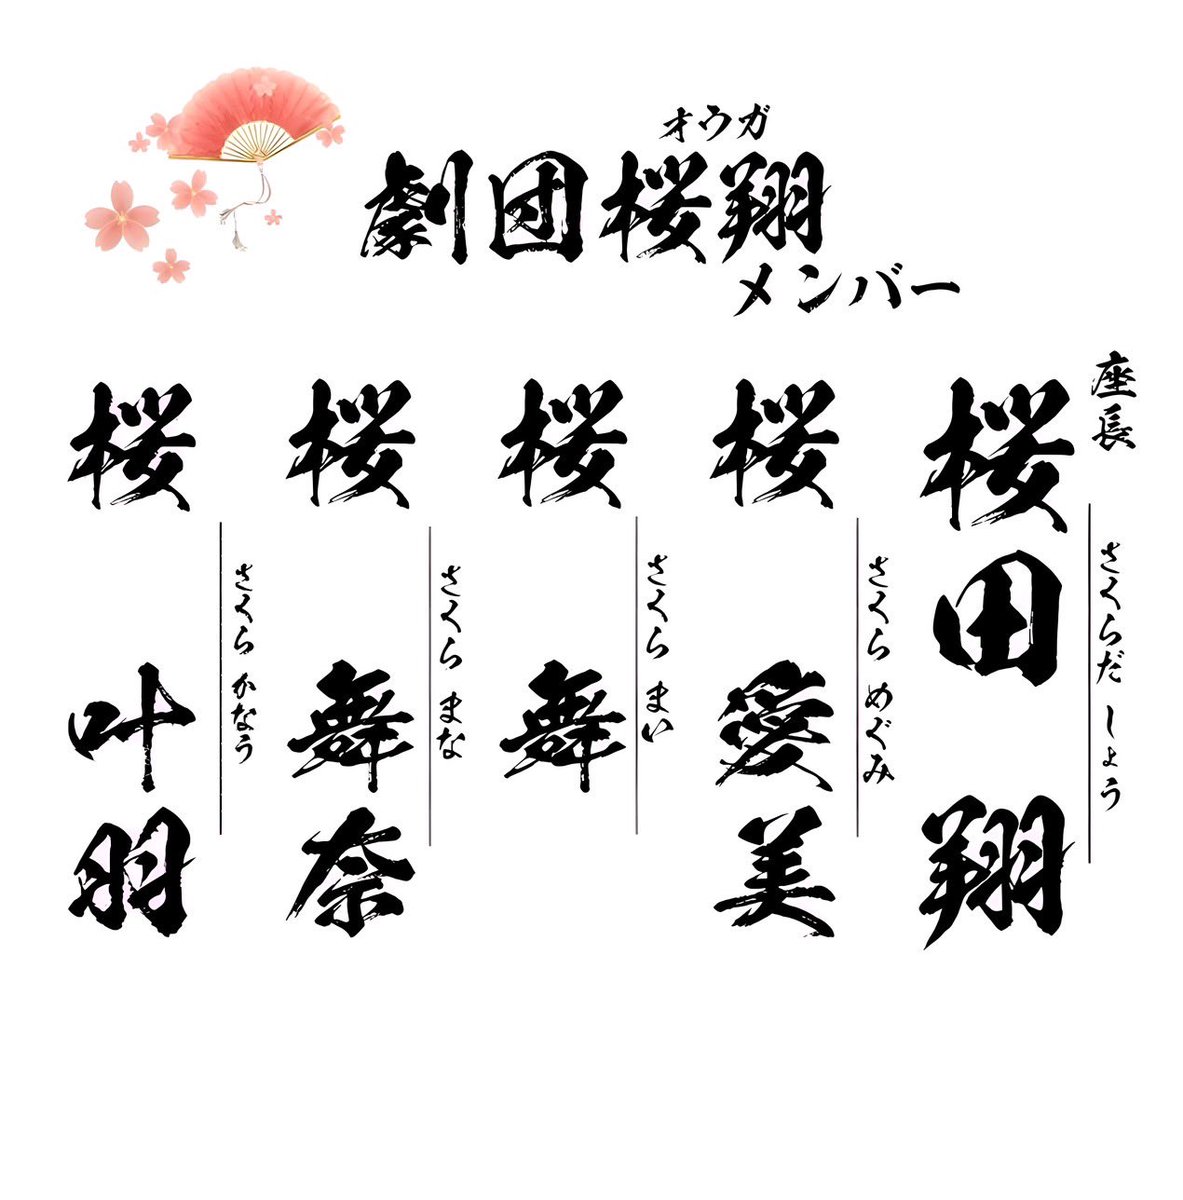 オウガ
劇団桜翔
メンバー
座長
さくらだ しょう
桜田 翔
さくら めぐみ
桜 愛美
さくら まい
桜 舞
さくら まな
桜 舞奈
さくら かなう
桜 叶羽